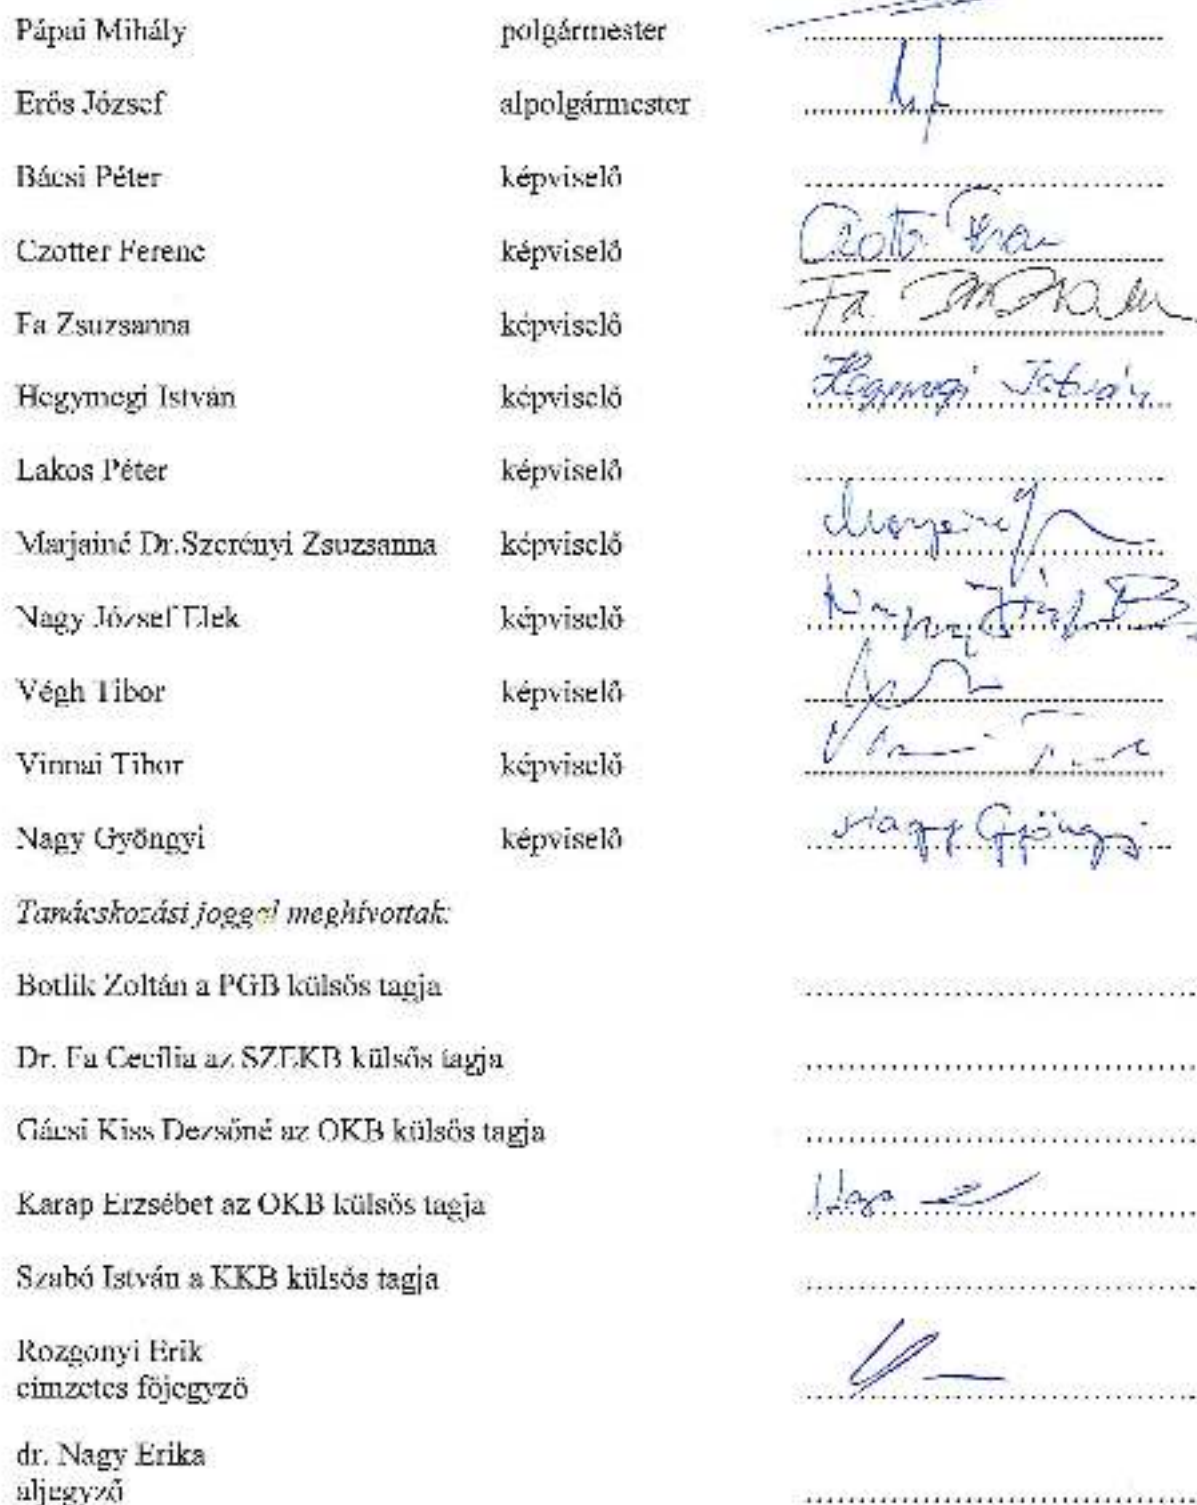 Pápai Mihály polgármester
Erős József alpolgármester
Bácsi Péter képviselő
Czotter Ferenc képviselő
Fa Zsuzsanna képviselő
Hegymegi István képviselő
Hegymegi István
Lakos Péter képviselő
Marjainé Dr.Szerényi Zsuzsanna képviselő
Nagy József Elek képviselő
Végh Tibor képviselő
Vinnai Tibor képviselő
Nagy Gyöngyi képviselő
Nagy Gyöngyi
Tanácskozási joggal meghívottak:
Botlik Zoltán a PGB külsős tagja
Dr. Fa Cecília az SZEKB külsős tagja
Gácsi Kiss Dezsőné az OKB külsős tagja
Karap Erzsébet az OKB külsős tagja
Szabó István a KKB külsős tagja
Rozgonyi Erik
címzetes főjegyző
dr. Nagy Erika
aljegyző